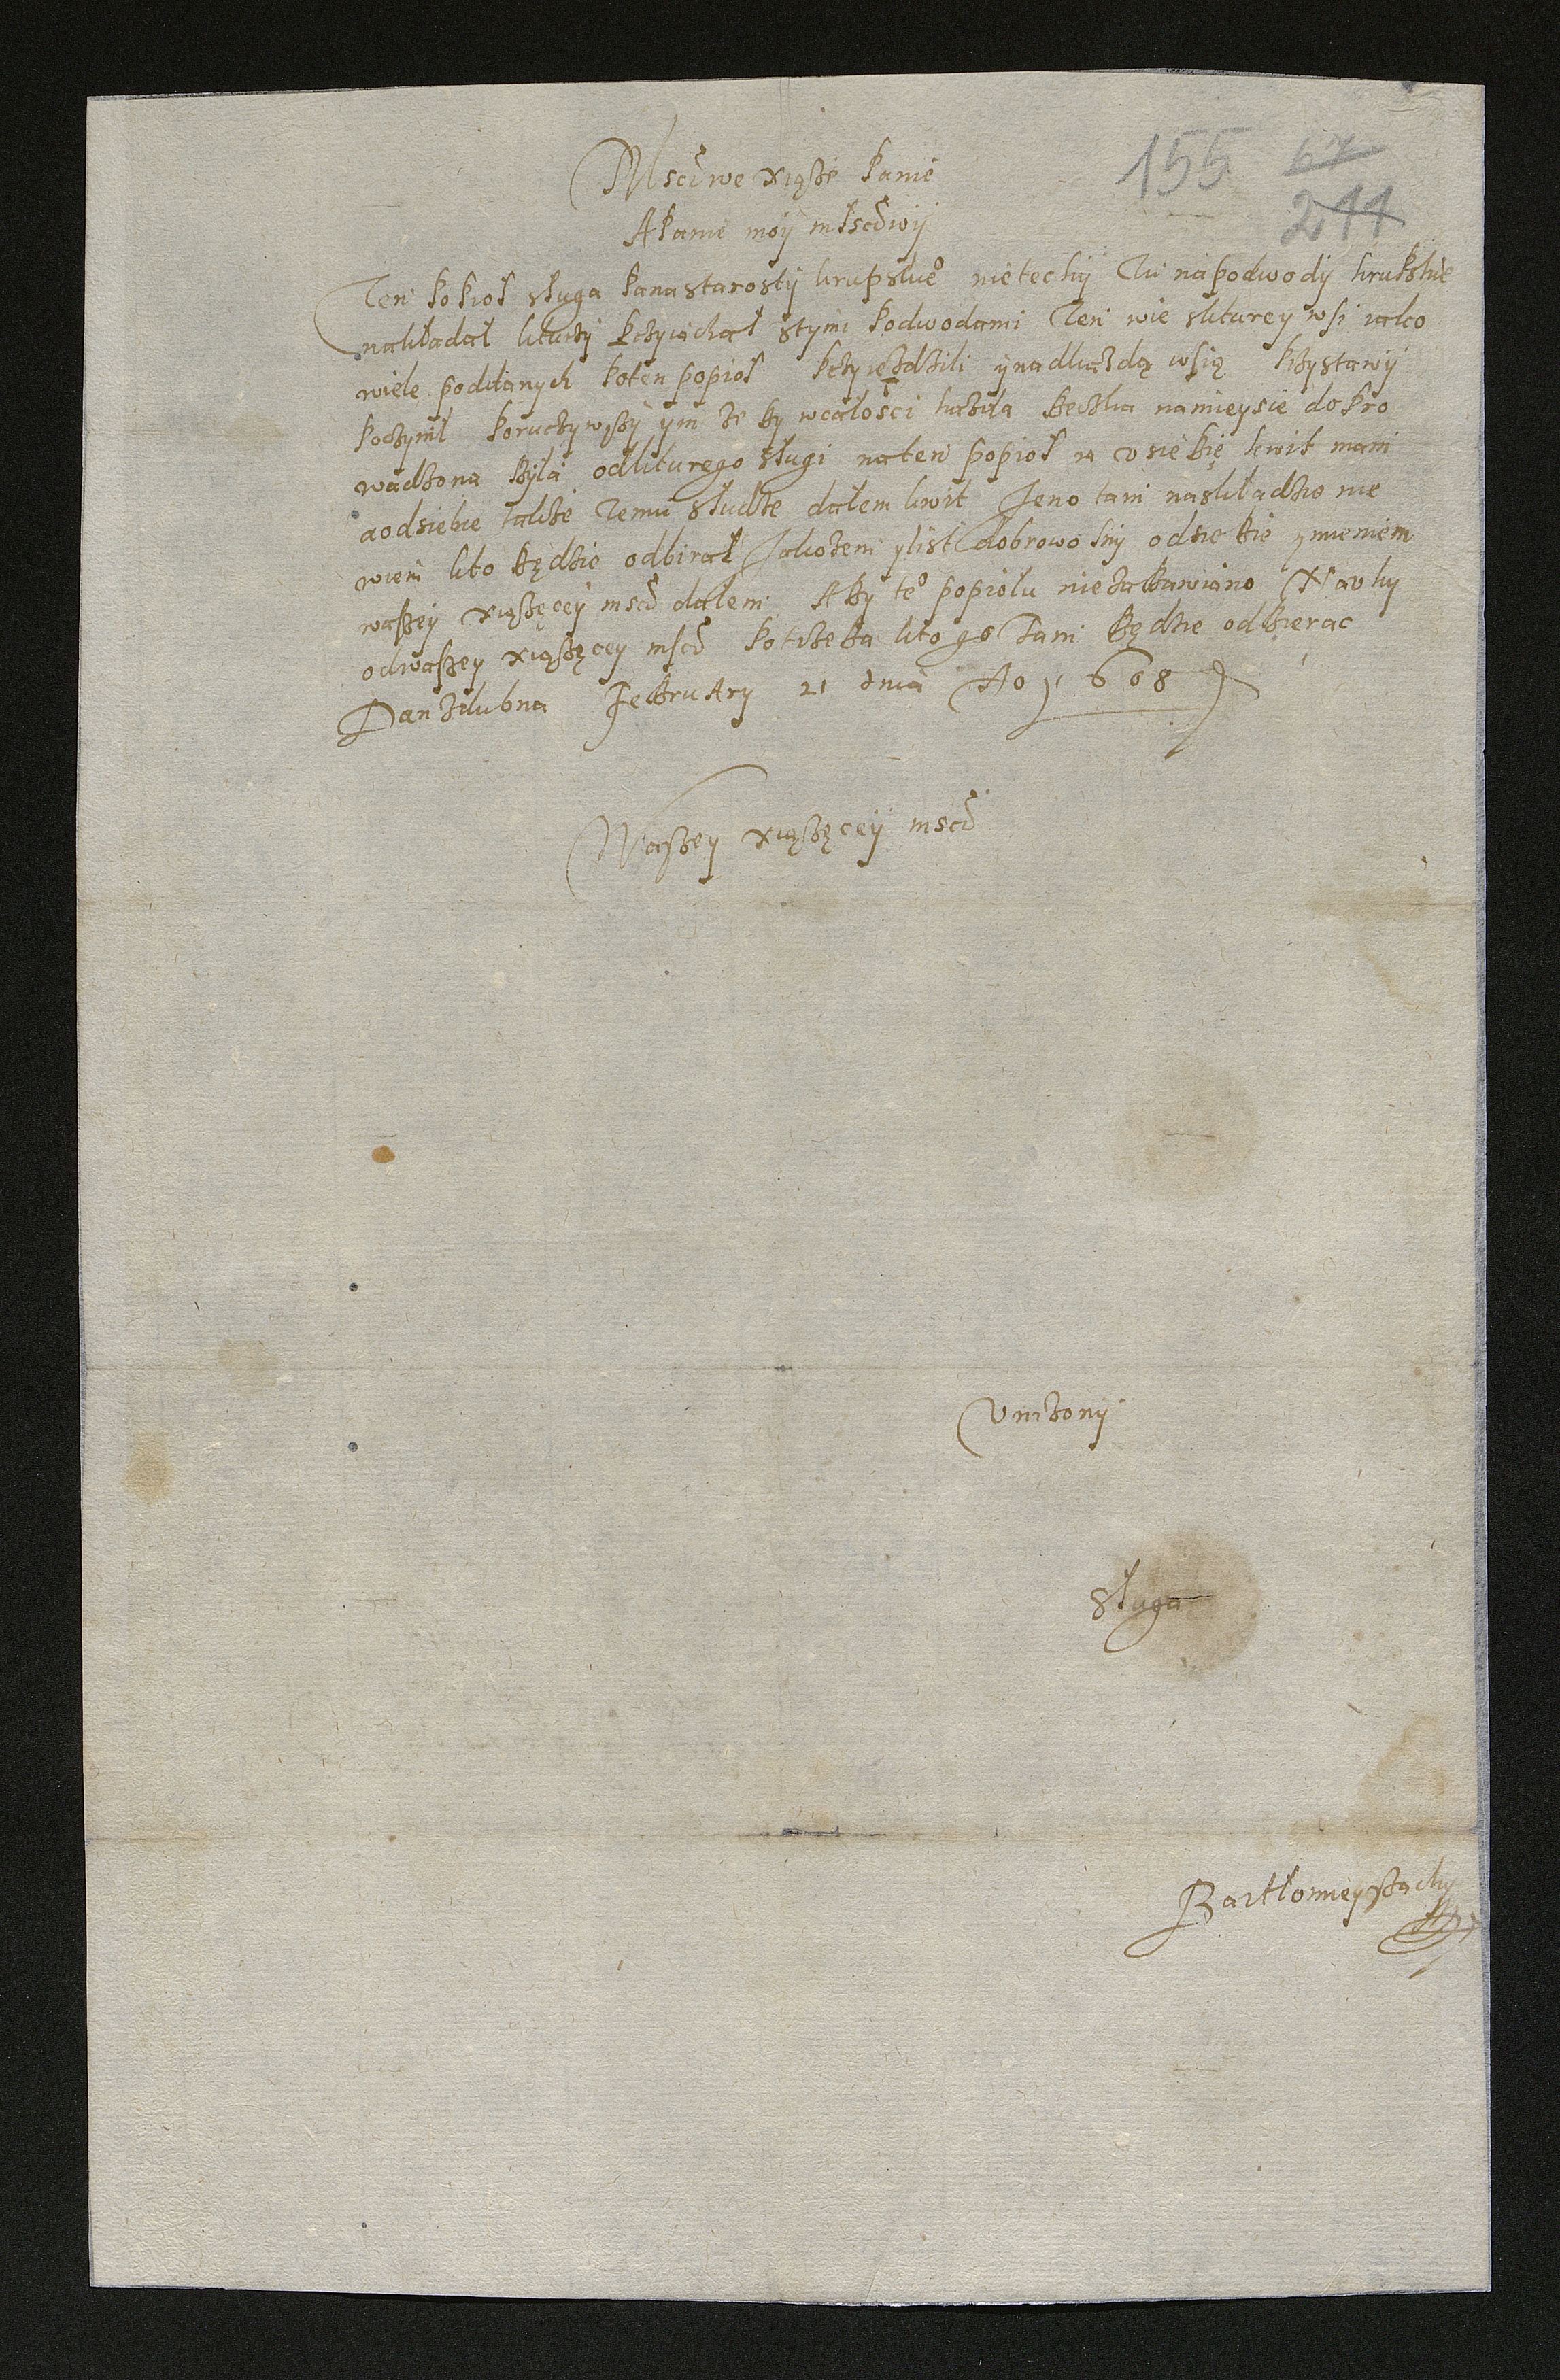 155 67
211
Msciwe xiąże Panie
A Panie moy mPsciwy
Ten Popioł sługa Pana starosty krupskieo nietechy Tu napodwody krupskie
nakładał który Pczyiachał stymi Podwodami Ten wie skturey wsi iako
wiele poddanych Poten popioł Pczyieżdzili ynadkażdą wsią Pżystawy
Poczynił Poruczywszy ym że by wcałosci każda Beczka namieysce doPro
wadzona Była odkturego sługi naten popioł ia v siebię kwit mam
aodsiebie także Temu słudze dałem kwit Jeno tam naskładzie nie
wiem kto będzie odbirał Jakożem ylist dobrowolny odsiebie ymieniem
waszey xiążęcey msci dałem ABy teo popiołu niezabawiano Nauky
odwaszey xiążęcey mscI PotżeBa kto go Tam Będzie odbierac
Dan zdubna FeBruAry 21 dnia Ao 1608
Waszey xiążęcey mscI
Vniżony
sługa
Bartłomiey